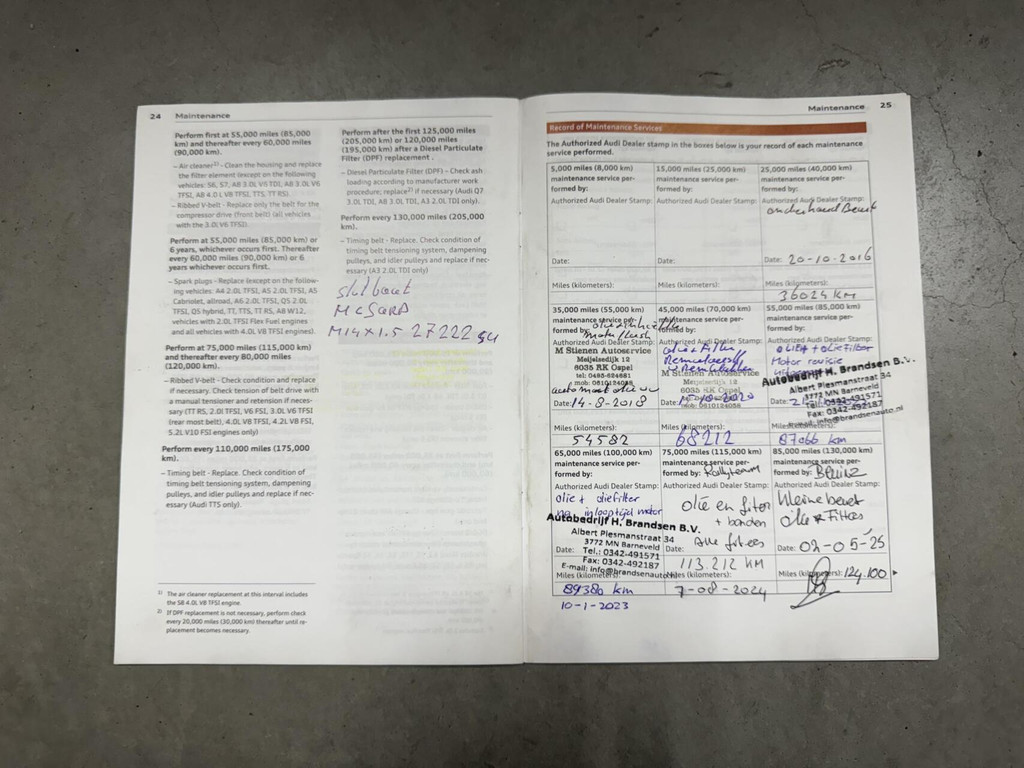 24 Maintenance
Perform first at 55,000 miles (85,000
km) and thereafter every 60,000 miles
(90,000 km).
– Air cleaner1) - Clean the housing and replace
the filter element (except on the following
vehicles: S6, S7, A8 3.0L V6 TDI, A8 3.0L V6
TFSI, A8 4.0 L V8 TFSI, TTS, TT RS).
– Ribbed V-belt - Replace only the belt for the
compressor drive (front belt) (all vehicles
with the 3.0L V6 TFSI).
Perform at 55,000 miles (85,000 km) or
6 years, whichever occurs first. Thereafter
every 60,000 miles (90,000 km) or 6
years whichever occurs first.
– Spark plugs - Replace (except on the follow-
ing vehicles: A4 2.0L TFSI, A5 2.0L TFSI, A5
Cabriolet, allroad, A6 2.0L TFSI, Q5 2.0L
TFSI, Q5 hybrid, TT, TTS, TT RS, A8 W12,
vehicles with 2.0L TFSI Flex Fuel engines
and all vehicles with 4.0L V8 TFSI engines).
Perform at 75,000 miles (115,000 km)
and thereafter every 80,000 miles
(120,000 km).
– Ribbed V-belt - Check condition and replace
if necessary. Check tension of belt drive with
a manual tensioner and retension if neces-
sary (TT RS, 2.0L TFSI, V6 FSI, 3.0L V6 TFSI
(rear most belt), 4.0L V8 TFSI, 4.2L V8 FSI,
5.2L V10 FSI engines only).
Perform every 110,000 miles (175,000
km).
– Timing belt - Replace. Check condition of
timing belt tensioning system, dampening
pulleys, and idler pulleys and replace if nec-
essary (Audi TTS only).
1) The air cleaner replacement at this interval includes
the S8 4.0L V8 TFSI engine.
2) If DPF replacement is not necessary, perform check
every 20,000 miles (30,000 km) thereafter until re-
placement becomes necessary.
Perform after the first 125,000 miles
(205,000 km) or 120,000 miles
(195,000 km) after a Diesel Particulate
Filter (DPF) replacement .
– Diesel Particulate Filter (DPF) – Check ash
loading according to manufacturer work
procedure; replace2) if necessary (Audi Q7
3.0L TDI, A8 3.0L TDI, A3 2.0L TDI only).
Perform every 130,000 miles (205,000
km).
– Timing belt - Replace. Check condition of
timing belt tensioning system, dampening
pulleys, and idler pulleys and replace if nec-
essary (A3 2.0L TDI only)
M14 x 1.5 27222
Maintenance 25
Record of Maintenance Services
The Authorized Audi Dealer stamp in the boxes below is your record of each maintenance
service performed.
5,000 miles (8,000 km)
maintenance service per-
formed by:
Authorized Audi Dealer Stamp:
Date:
Miles (kilometers):
15,000 miles (25,000 km)
maintenance service per-
formed by:
Authorized Audi Dealer Stamp:
Date:
Miles (kilometers):
25,000 miles (40,000 km)
maintenance service per-
formed by:
Authorized Audi Dealer Stamp:
onderhoud Beurt
Date: 20-10-2016
Miles (kilometers):
36024 KM
35,000 miles (55,000 km)
maintenance service per-
formed by:
Authorized Audi Dealer Stamp:
M Stienen Autoservice
Meijelsedijk 12
6035 RK Ospel
tel: 0495-624681
mob: 0610124058
Date: 14-8-2018
Miles (kilometers):
54582
45,000 miles (70,000 km)
maintenance service per-
formed by:
Authorized Audi Dealer Stamp:
olie + Filter
M Stienen Autoservice
Meijelsedijk 12
6035 RK Ospel
mob: 0610124058
Date: 2020
Miles (kilometers):
68212
55,000 miles (85,000 km)
maintenance service per-
formed by:
Authorized Audi Dealer Stamp:
olie + olie Filter
Motor
Autobedrijf H. Brandsen B.V.
Albert Plesmanstraat 34
3772 MN Barneveld
Tel.: 0342-491571
Fax: 0342-492187
E-mail: info@brandsenauto.nl
Date:
Miles (kilometers):
87066 km
65,000 miles (100,000 km)
maintenance service per-
formed by:
Authorized Audi Dealer Stamp:
olie + oliefilter
na inlooptijd motor
Autobedrijf H. Brandsen B.V.
Albert Plesmanstraat 34
3772 MN Barneveld
Tel.: 0342-491571
Fax: 0342-492187
E-mail: info@brandsenauto.nl
Date:
Miles (kilometers):
89380 km
10-1-2023
75,000 miles (115,000 km)
maintenance service per-
formed by: Rallyteam
Authorized Audi Dealer Stamp:
olie en filter
+ banden
Date: Alle filters
113.212 KM
Miles (kilometers):
7-08-2024
85,000 miles (130,000 km)
maintenance service per-
formed by:
Authorized Audi Dealer Stamp:
kleine beurt
olie + Filters
Date: 02-05-25
Miles (kilometers): 124.100